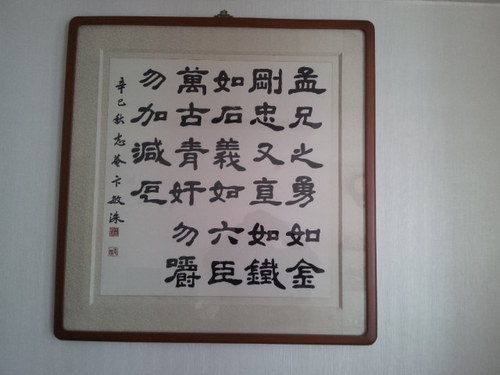 孟兄之勇如金
剛忠又直如鐵
如石義如六臣
萬古青奸勿嚼
勿加減
辛巳秋志 卞敏洙